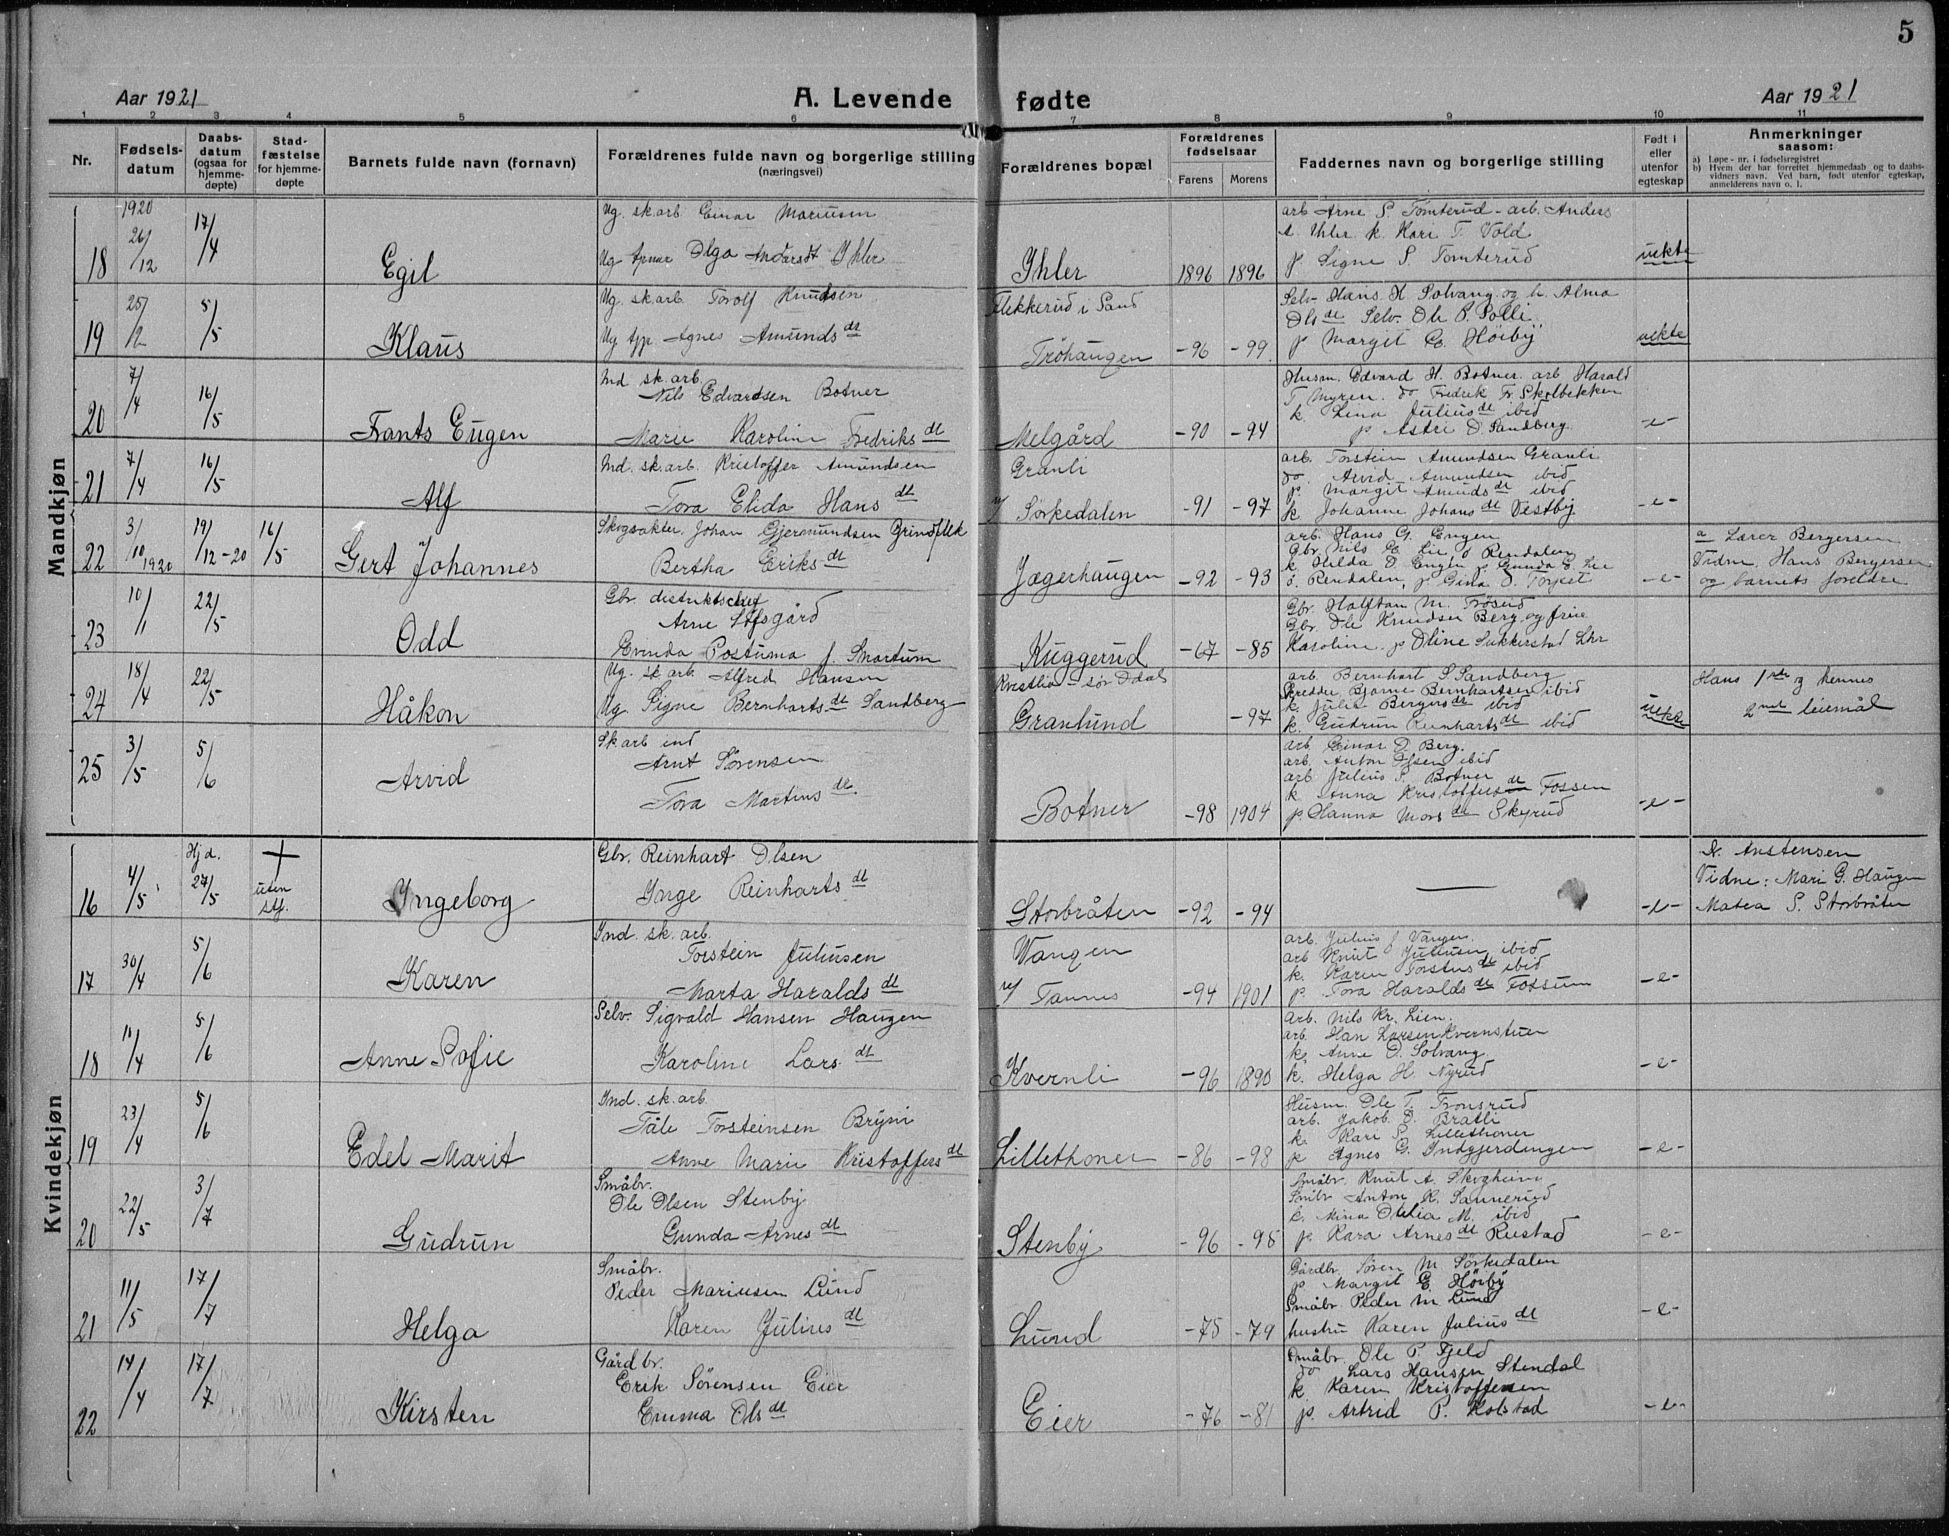 5
Aar 1921
A. Levende fødte
Aar 1921
1 2 3 4 5 6 7 8 9 10 11
Nr.
Fødsels-datum
Daabs-datum (ogsaa for hjemme-døpte)
Stad-fæstelse for hjemme-døpte
Barnets fulde navn (fornavn)
Forældrenes fulde navn og borgerlige stilling (næringsvei)
Forældrenes bopæl
Forældrenes fødselsaar
Farens Morens
Faddernes navn og borgerlige stilling
Født i eller utenfor egteskap
Anmerkninger saasom:
a) Løpe-nr. i fødselsregistret
b) Hvem der har forrettet hjemmedaab og to daabs-vidners navn. Ved barn, født utenfor egteskap, anmelderens navn o. l.
Mandkjøn
18 1920 26/12 17/4 Egil
Ug. sk.arb. Einar Mariusen
Ug. Olga Andersdt Ihler
Ihler 1896 1896
arb. Arne P. Tomterud - arb. Anders
A. Ihler k. Kari T. Vold
p Signe P. Tomterud
uekte
19 25/2 5/5 Klaus
Ug. sk.arb. Torolf Knudsen
Ug tjp. Agnes Amundsdt
Flekkerud i Sand
Trøhaugen -96 -99.
Selv. Hans H. Solvang og h. Alma
Olsdt Selv. Ole P. Polli
p Margit E. Höiby
uekte
20 7/4 16/5 Frants Eugen
Ind sk.arb.
Nils Edvardsen Botner
Marie Karoline Fredriksdt
Melgård -90 -94
Husm. Edvard H. Botner. arb. Harald
T. Myren. do Fredrik Fr. Skolbekken
k. Lina Juliusdt ibid
p Astri D. Sandberg
-e-
21 7/4 16/5 Alf
Ind. sk.arb. Kristoffer Amundsen
Tora Elida Hansdt
Granli
n/ Sörkedalen -91 -97
arb. Torstein Amundsen Granli
do. Arvid Amundsen ibid
p. Margit Amundsdt ibid
k Johanne Johansdt Vestby
-e-
22 3/10 1920 19/12-20 16/5 Gert Johannes
Skogvakter. Johan Gjermundsen Grindflek
Bertha Eriksdt
Jægerhaugen -92 -93
arb. Hans G. Engen
Gbr. Nils E. Lie, i Rendalen
k Hilda D. Engen p Gunda E. Lie
i. Rendalen, p Gina O. Torset
-e-
a Lærer Bergersen
Vidne. Hans Bergersen
og barnets foreldre
23 10/1 22/5 Odd
Gbr. distriktschef
Arne Stfsgård
Evinda Postuma f. Smartum
Kuggerud -67 -85
Gbr. Halftan M. Frøsud
Gbr. Ole Knudsen Berg og frue
Karoline. p Oline Sukkerstad Lhr
24 18/4 22/5 Håkon
Ug. sk arb Alfred Hansen
Ug. Signe Bernhartsdt Sandberg
Kvestlia - sör Odal
Granlund -97
arb. Bernhart S Sandberg
Skredder Bjarne Bernhartsen ibid
k Julie Bergersdt ibid
k. Gudrun Reinhartsdt ibid
uekte
Hans 1ste og hennes
2net leiemål
25 3/5 5/6 Arvid
Sk arb ind
Arnt Sörensen
Tora Martinsdt.
Botner -98 1904
arb. Einar D. Berg.
arb. Anton Olsen ibid
arb. Julius P. Botner
k Anna Kristoffersdt Fossen
p Hanna Morsdt Skyrud
-e-
Kvindekjøn
16 4/5 Hjd. 27/5 + uten stf. Ingeborg
Gbr. Reinhart Olsen
Inge Reinhartsdt
Storbråten -92 -94
—
-e-
N. Anstensen
Vidne: Mari G. Haugen
Matea S. Storbråten
17 30/4 5/6 Karen
Ind. sk. arb.
Torstein Juliusen
Marta Haraldsdt
Vangen
n/ Tannes -94 1901
arb. Julius J Vangen
arb Knut Juliusen ibid
k. Karen Torstensdt ibid
p. Tora Haraldsdt Fossum
-e-
18 11/4 5/6 Anne Sofie
Selv. Sigvald Hansen Haugen
Karoline Larsdt
Kvernli -96 1890
arb. Nils Kr. Lien.
arb. Han Larsen Kvernstuen
k. Anne O. Solvang
k. Helga H. Nyrud
-e-
19 23/4 5/6 Edel Marit
Ind. sk.arb.
Tåle Torsteinsen Bryni
Anne Marie Kristoffersdt
Lillethoner -86 -98
Husm. Ole T. Tronsrud
arb. Jakob. O. Bratli
k. Kari P. Lillethoner
p Agnes G. Indgjerdingen
-e-
20 22/5 3/7 Gudrun
Småbr.
Ole Olsen Stenby
Gunda Arnesdt
Stenby -96 -98
Småbr. Knut A. Skogheim
Småbr Anton K. Sannerud
k. Mina Otilia M. ibid
p Kara Arnesdt Rustad
-e-
21 11/5 17/7 Helga
Småbr.
Peder Mariusen Lund
Karen Juliusdt
Lund -75 -79
Gårdbr. Søren M Sörkedalen
p Margit E. Höiby
Småbr Peder M Lund
hustru Karen Juliusdt
-e-
22 14/4 17/7 Kirsten
Gårdbr.
Erik Sörensen Eier
Emma Olsdt
Eier -76 -81
Småbr Ole P. Fjeld
do Lars Hansen Stendal
k Karen Kristoffersen
p. Astrid P. Holstad
-e-